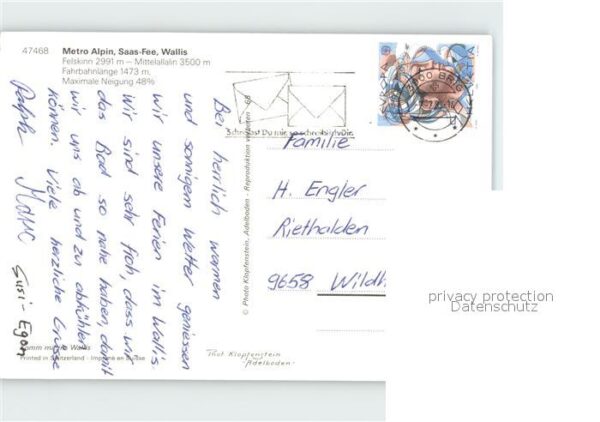 47468 Metro Alpin, Saas-Fee, Wallis
Felskinn 2991 m – Mittelallalin 3500 m
Fahrbahnlänge 1473 m,
Maximale Neigung 48%
Bei herrlich warmen
und sonnigem Wetter geniessen
wir unsere Ferien im Wallis.
Wir sind sehr froh, dass wir
das Bad so nahe haben, damit
wir uns ab und zu abkühlen
können. Viele herzliche Grüsse
Ralph Marc
Susi - Egon
© Photo Klopfenstein, Adelboden - Reproduktion verboten 68
Schreibst Du mir so schreib ich Dir
HELVETIA
3900 BRIG
Familie
H. Engler
Riethalden
9658 Wildh
Phot Klopfenstein
Adelboden
Wallis
Printed in Switzerland - Imprimé en Suisse
privacy protection
Datenschutz